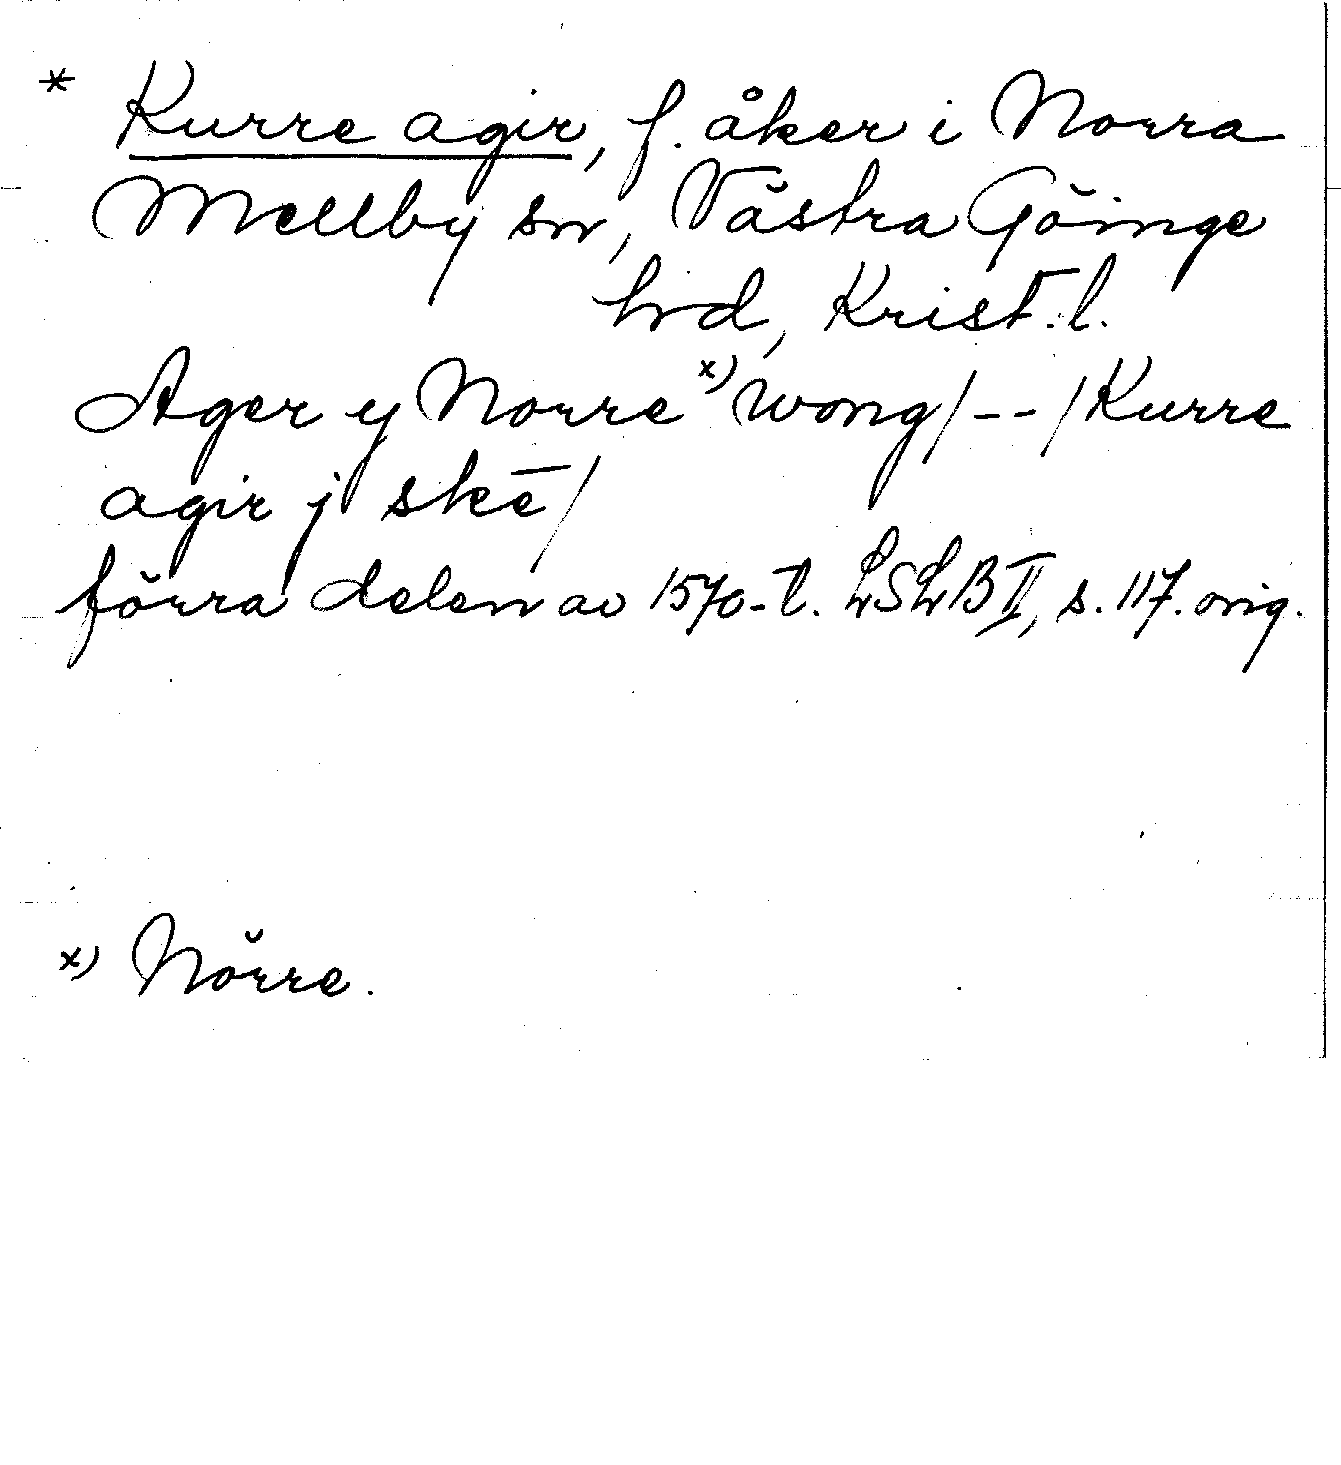 * Kurre agir, f. åker i Norra
Mellby sn, Västra Göinge
hd, Krist. l.
Ager y Norre x) wong/--/Kurre
agir j skē/
förra delen av 1570-t. LSLB II, s. 117. orig.
x) Nörre.